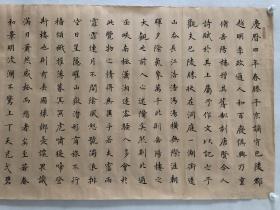 慶曆四年春滕子京謫守巴陵郡
越明年政通人和百廢俱興乃重
脩岳陽樓增其舊制刻唐賢今人
詩賦於其上屬予作文以記之予
觀夫巴陵勝狀在洞庭一湖銜遠
山吞長江浩浩湯湯橫無際涯朝
暉夕陰氣象萬千此則岳陽樓之
大觀也前人之述備矣然則北通
巫峽南極瀟湘遷客騷人多會於
此覽物之情得無異乎若夫霪雨
霏霏連月不開陰風怒號濁浪排
空日星隱曜山岳潛形商旅不行
檣傾楫摧薄暮冥冥虎嘯猿啼登
斯樓也則有去國懷鄉憂讒畏譏
滿目蕭然感極而悲者矣至若春
和景明波瀾不驚上下天光一碧